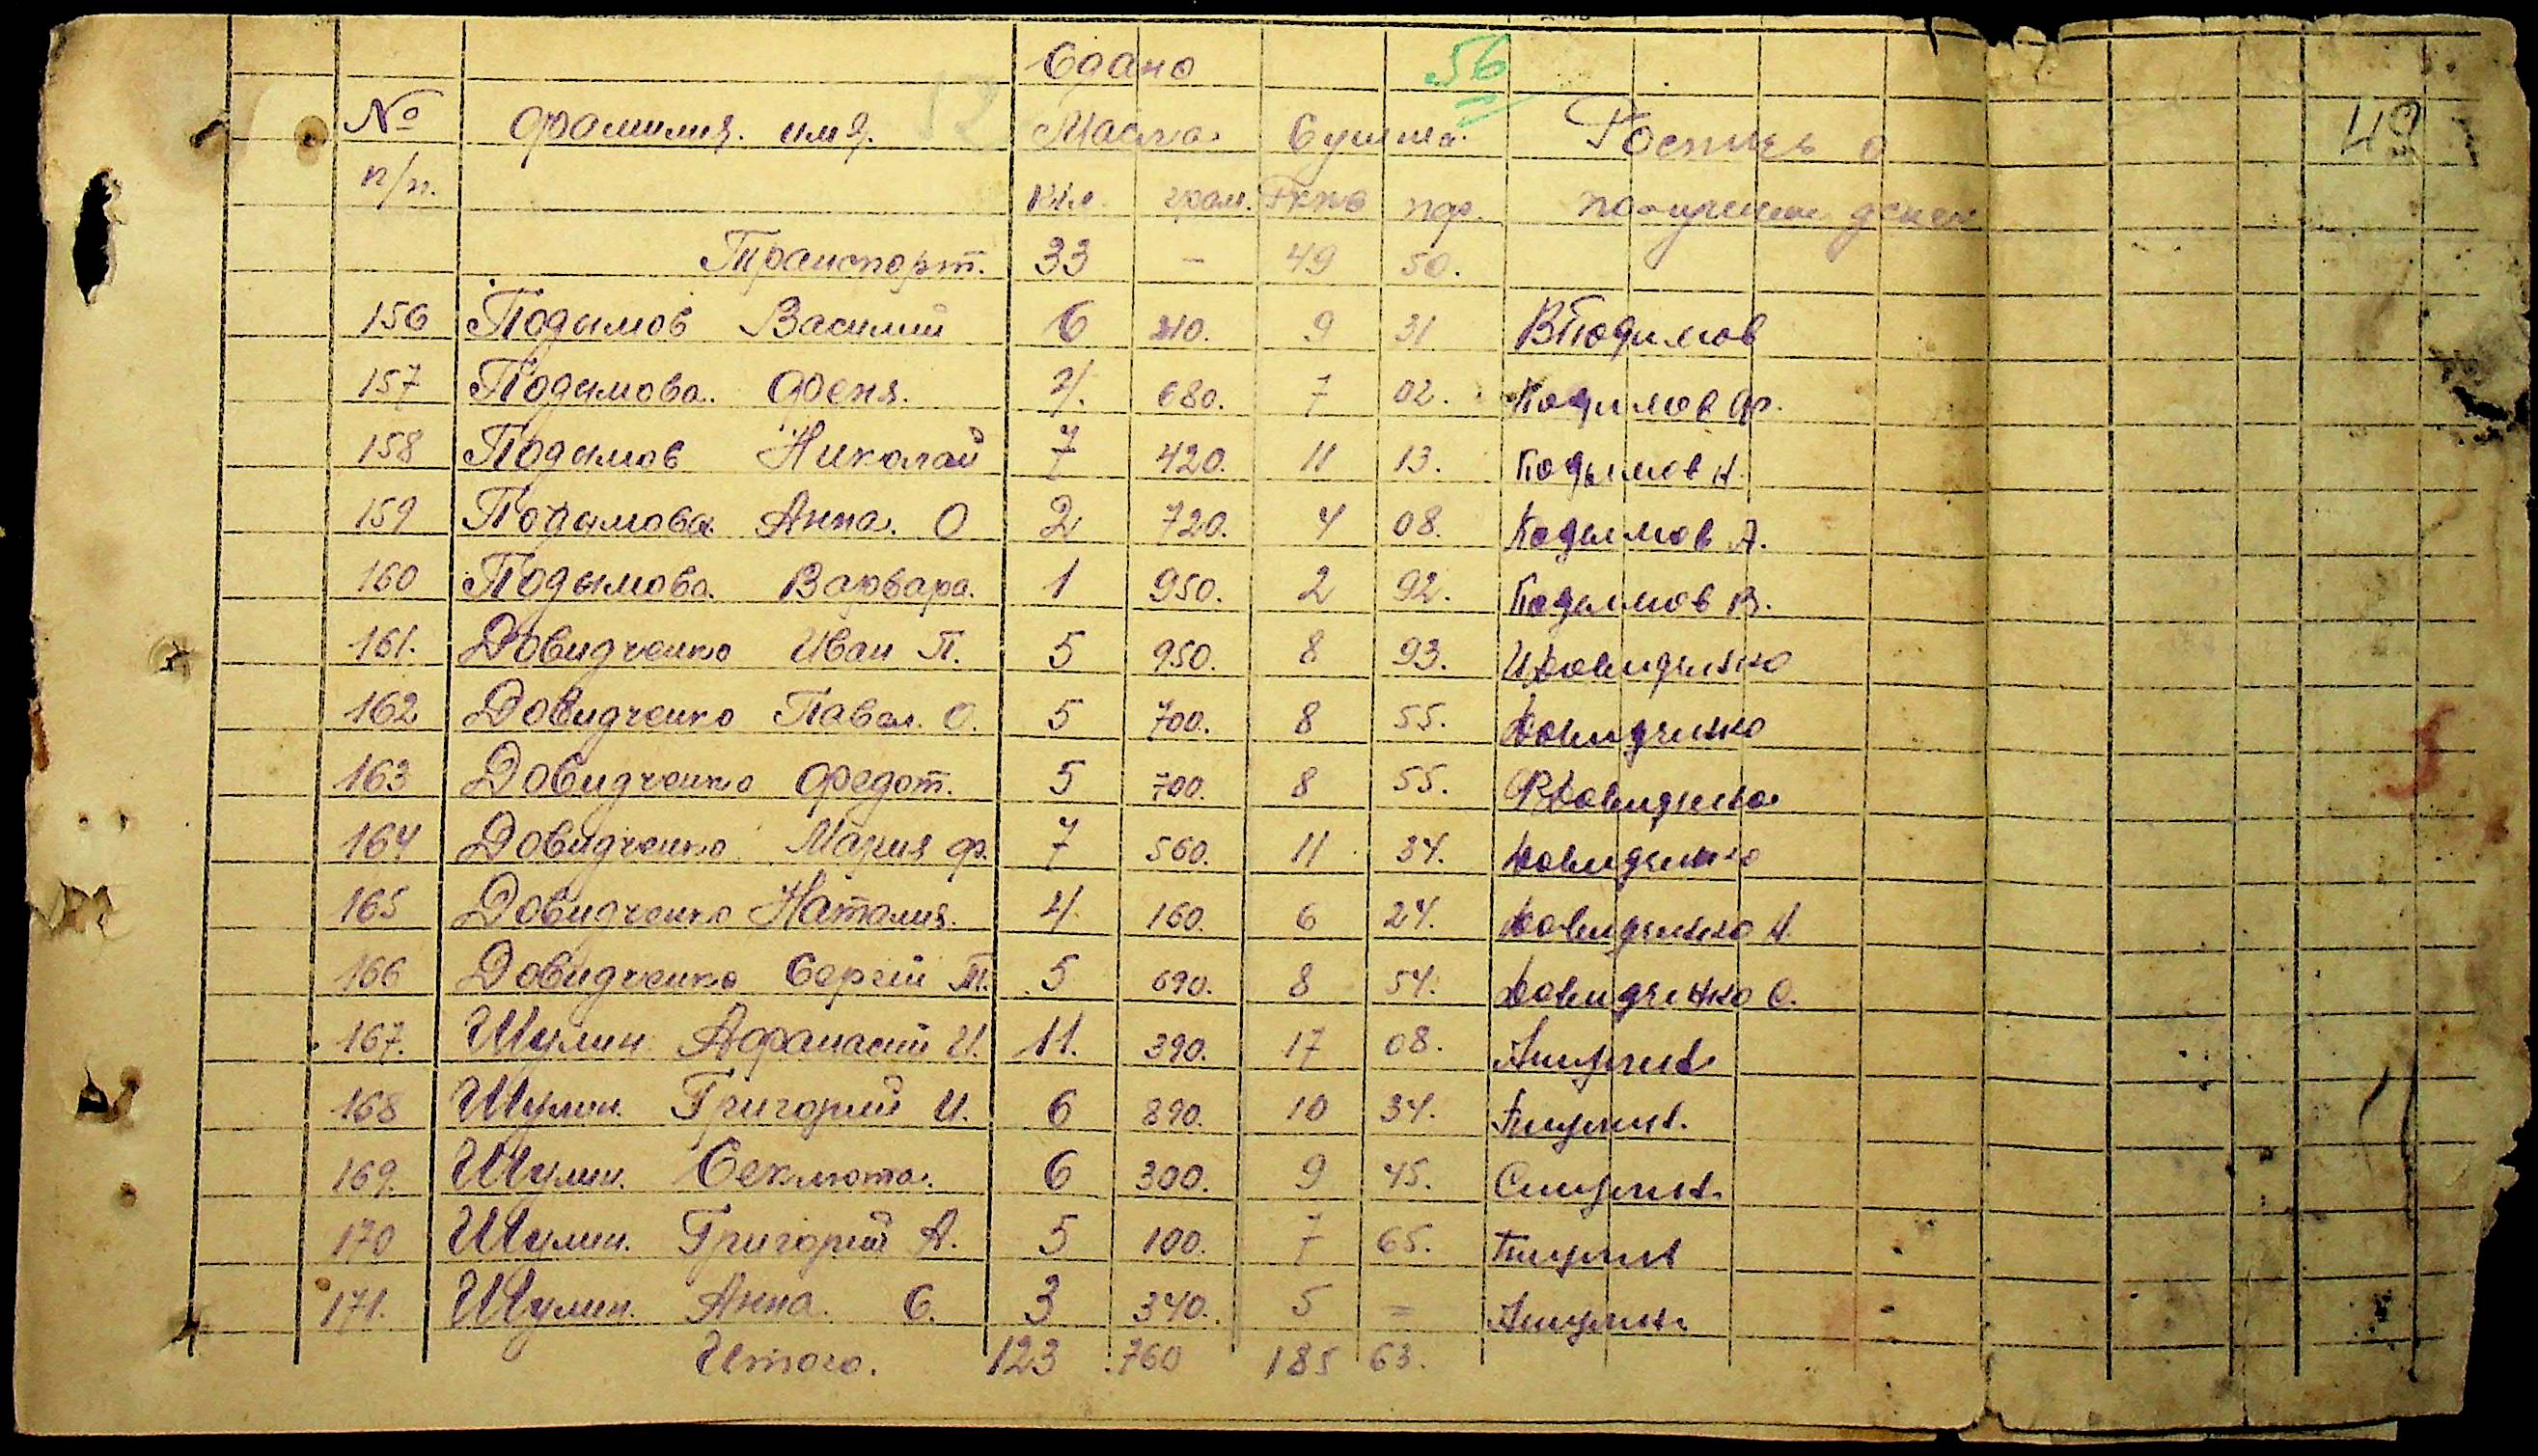 Сдано 56
№ Фамилия. имя. Масла. Сумма. Роспись о 49
п/п. Кил. грам. Ркнв пф. получении денег
Транспорт. 33 - 49 50.
156 Подымов Василий 6 210. 9 31 ВПодимов
157 Подымова. Феня. 4. 680. 7 02. Подимов Ф.
158 Подымов Николай 7 420. 11 13. Подымов Н.
159 Подымова Анна. О 2 720. 4 08. Подымов А.
160 Подымова. Варвара. 1 950. 2 92. Подымов В.
161. Довидченко Иван П. 5 950. 8 93. ИДовидченко
162 Довидченко Павел. О. 5 700. 8 55. Довидченко
163 Довидченко Федот. 5 700. 8 55. ФДовидченко
164 Довидченко Мария Ф. 7 560. 11 34. Довидченко
165 Довидченко Наталия. 4 160. 6 24. Довидченко Н.
166 Довидченко Сергей Т. 5 690. 8 54. Довидченко С.
167. Шулин Афанасий И. 11. 390. 17 08. Ашулин
168 Шулин. Григорий И. 6 890. 10 34. Гшулин.
169. Шулин. Секлюта. 6 300. 9 45. Сшулин.
170 Шулин. Григорий А. 5 100. 7 65. Гшулин
171. Шулин. Анна. С. 3 340. 5 = Ашулин
Итого. 123 760 185 63.